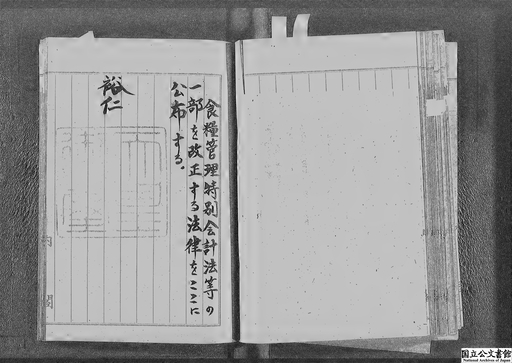 食糧管理特別会計法等の
一部を改正する法律をここに
公布する。
裕仁
内閣
国立公文書館
National Archives of Japan